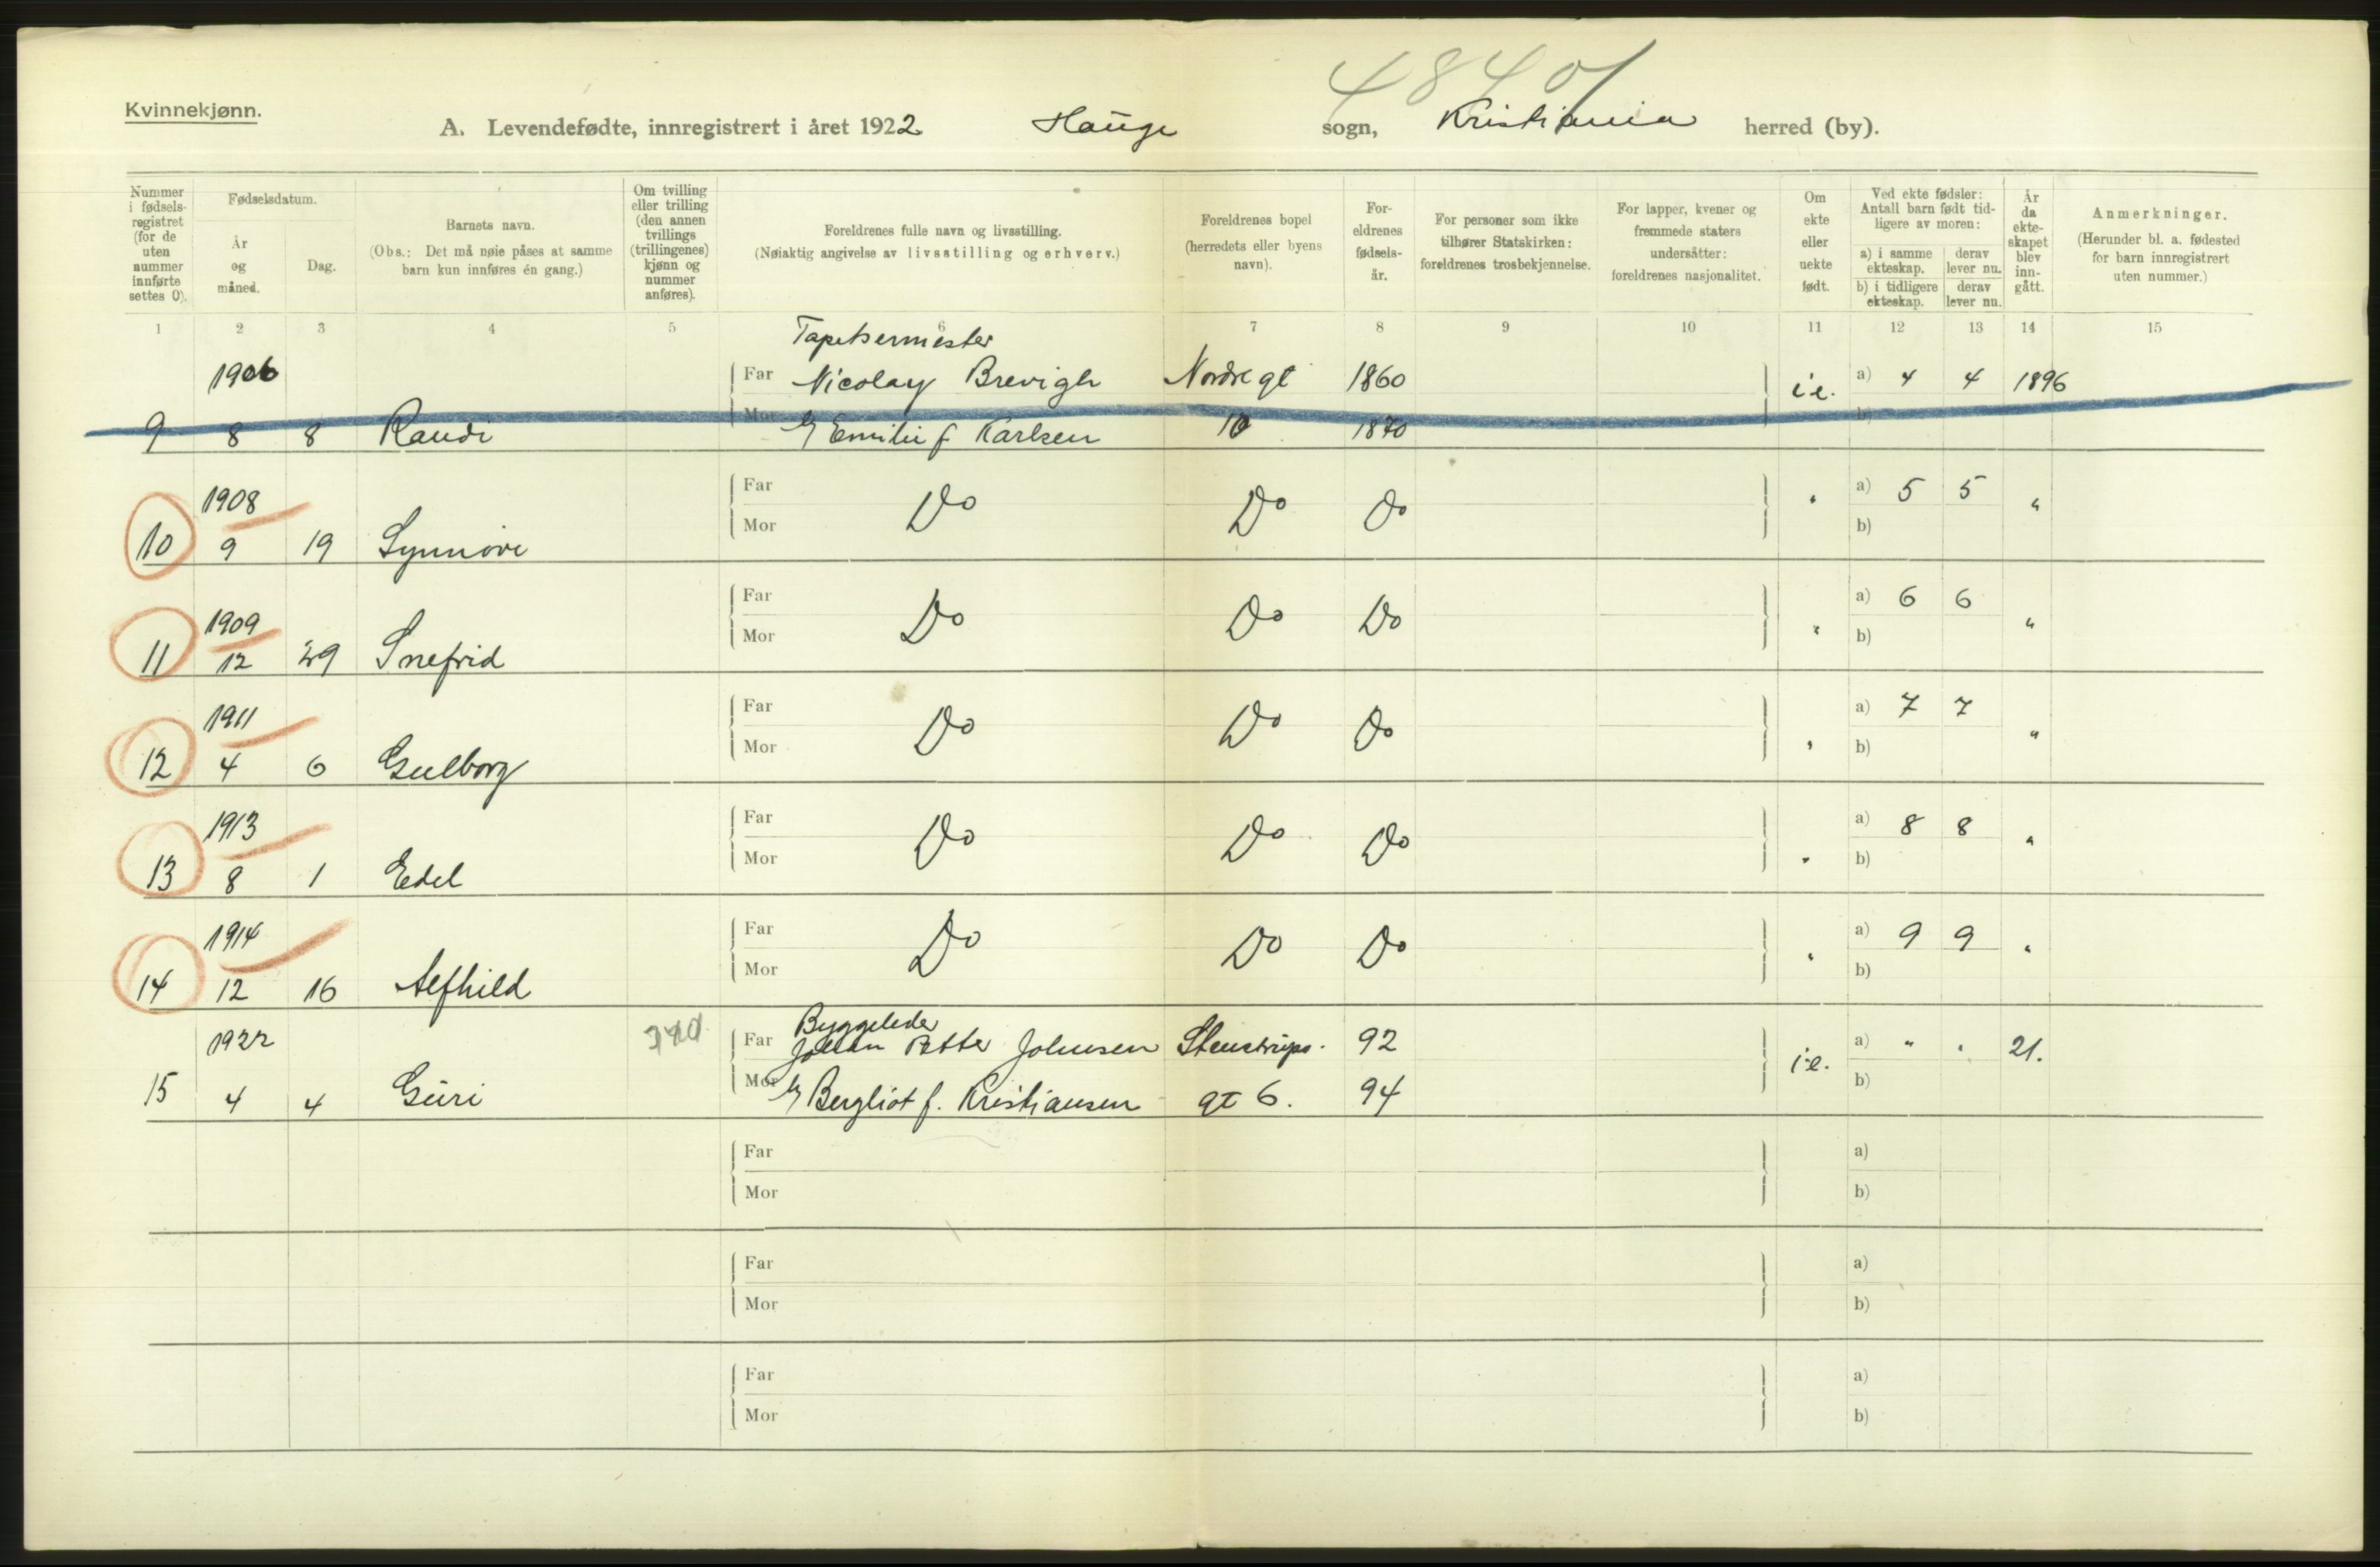 4840/
Kvinnekjønn.
A. Levendefødte, innregistrert i året 1922 Hauge sogn, Kristiania herred (by).
Nummer i fødsels-registret (for de uten nummer innførte settes 0).
Fødselsdatum.
År og måned.
Dag.
Barnets navn.
(Obs.: Det må nøie påses at samme barn kun innføres én gang.)
Om tvilling eller trilling (den annen tvillings (trillingenes) kjønn og nummer anføres).
Foreldrenes fulle navn og livsstilling.
(Nøiaktig angivelse av livsstilling og erhverv.)
Foreldrenes bopel (herredets eller byens navn).
For-eldrenes fødsels-år.
For personer som ikke tilhører Statskirken: foreldrenes trosbekjennelse.
For lapper, kvener og fremmede staters undersåtter: foreldrenes nasjonalitet.
Om ekte eller uekte født.
Ved ekte fødsler: Antall barn født tid-ligere av moren:
a) i samme ekteskap.
derav lever nu.
b) i tidligere ekteskap.
derav lever nu.
År da ekte-skapet blev inn-gått.
Anmerkninger.
(Herunder bl. a. fødested for barn innregistrert uten nummer.)
1 2 3 4 5 6 7 8 9 10 11 12 13 14 15
Tapetsermester
1906 Far Nicolay Brevigh Nordregt 1860 i e. a) 4 4 1896
9 8 8 Randi Mor Emilie f Karlsen 10 1870 b)
1908 Far Do Do Do " a) 5 5 "
10 9 19 Synnøve Mor b)
1909 Far Do Do Do " a) 6 6 "
11 12 29 Snefrid Mor b)
1911 Far Do Do Do " a) 7 7 "
12 4 6 Gulborg Mor b)
1913 Far Do Do Do " a) 8 8 "
13 8 1 Edel Mor b)
1914 Far Do Do Do " a) 9 9 "
14 12 16 Alfhild Mor b)
Byggeleder
1922 Far Johan Petter Johnsen Stenstrups- 92 i e. a) " " 21.
15 4 4 Guri Mor Bergliot f. Kristiansen gt 6. 94 b)
Far a)
Mor b)
Far a)
Mor b)
Far a)
Mor b)